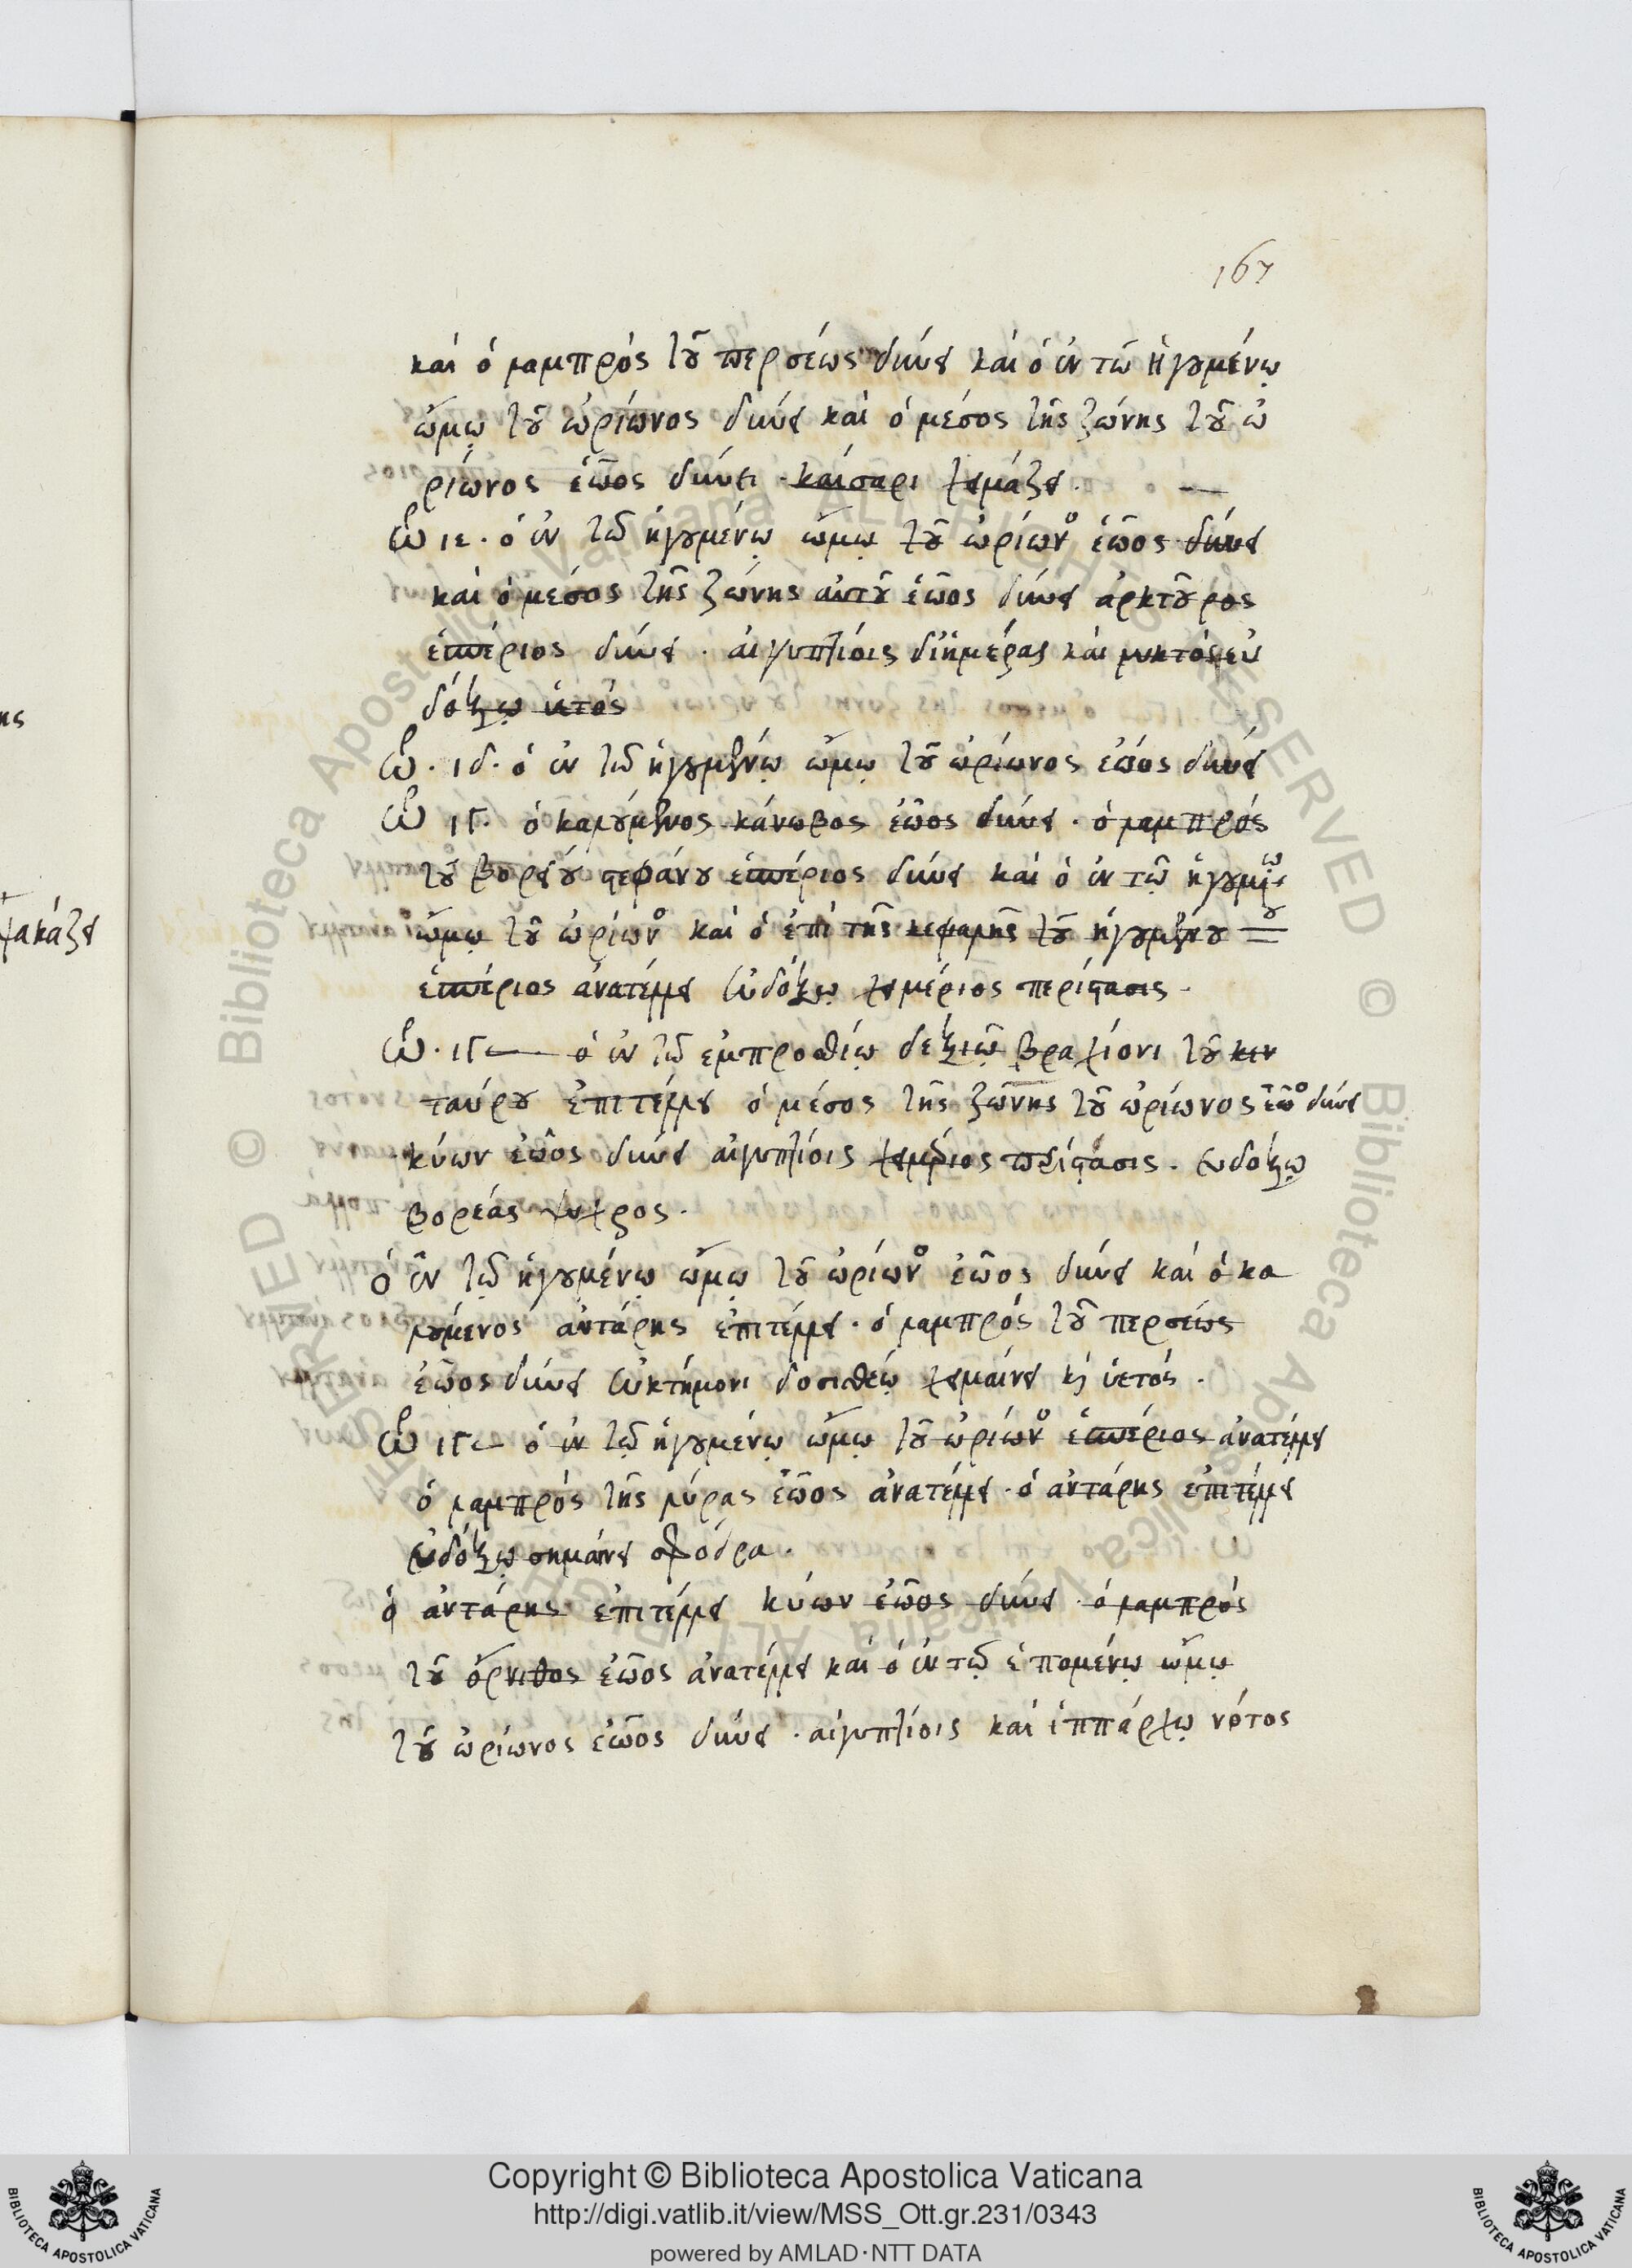 167
καὶ ὁ λαμπρὸς τοῦ περσέως δύνει καὶ ὁ ἐν τῷ ἡγουμένῳ
ὤμῳ τοῦ ὠρίωνος δύνει καὶ ὁ μέσος τῆς ζώνης τοῦ ὠ
ρίωνος ἑῶος δύνει · καίσαρι χειμάζει.
ὡρ ιε · ὁ ἐν τῷ ἡγουμένῳ ὤμῳ τοῦ ὠρίωνο ἑῶος δύνει
καὶ ὁ μέσος τῆς ζώνης αὐτοῦ ἑῶος δύνει ἀρκτοῦρος
ἑσπέριος δύνει · αἰγυπτίοις δι ἡμέρας καὶ νυκτὸς εὐ
δόξῳ ὑετός
ὡρ · ιδ · ὁ ἐν τῷ ἡγουμένῳ ὤμῳ τοῦ ὠρίωνος ἑῶος δύνει
ὡρ ιγ · ὁ καλούμενος κάνωβος ἑῶος δύνει · ὁ λαμπρὸς
τοῦ βορείου στεφάνου ἑσπέριος δύνει καὶ ὁ ἐν τῷ ἡγουμένῳ
ὤμῳ τοῦ ὠρίωνο καὶ ὁ ἐπὶ τῆς κεφαλῆς τοῦ ἡγουμένου
ἑσπέριος ἀνατέλλει εὐδόξῳ χειμέριος περίστασις ·
ὡρ · ιγ ὁ ἐν τῷ ἐμπροσθίῳ δεξιῷ βραχίονι τοῦ κεν
ταύρου ἐπιτέλλει ὁ μέσος τῆς ζώνης τοῦ ὠρίωνος ἑῶο δύνει
κύων ἑῶος δύνει αἰγυπτίοις χειμέριος περίστασις · εὐδόξῳ
βορέας ψυχρος ·
ὁ ἐν τῷ ἡγουμένῳ ὤμῳ τοῦ ὠρίωνο ἑῶος δύνει καὶ ὁ κα
λούμενος ἀντάρης ἐπιτέλλει · ὁ λαμπρὸς τοῦ περσέως
ἑῶος δύνει εὐκτήμονι δοσιθέῳ χειμαίνει κὶ ὑετός ·
ὡρ ιγ ὁ ἐν τῷ ἡγουμένῳ ὤμῳ τοῦ ὠρίωνο ἑσπέριος ἀνατέλλει
ὁ λαμπρὸς τῆς λύρας ἑῶος ἀνατέλλει · ὁ ἀντάρης ἐπιτέλλει
εὐδόξῳ σημαίνει σφόδρα ·
ὁ ἀντάρης ἐπιτέλλει κύων ἑῶος δύνει · ὁ λαμπρὸς
τοῦ ὄρνιθος ἑῶος ἀνατέλλει καὶ ὁ ἐν τῷ ἑπομένῳ ὤμῳ
τοῦ ὠρίωνος ἑῶος δύνει · αἰγυπτίοις καὶ ἱππάρχῳ νότος
ης
ψακάζει
Copyright © Biblioteca Apostolica Vaticana
http://digi.vatlib.it/view/MSS_Ott.gr.231/0343
powered by AMLAD·NTT DATA
BIBLIOTECA APOSTOLICA VATICANA
BIBLIOTECA APOSTOLICA VATICANA